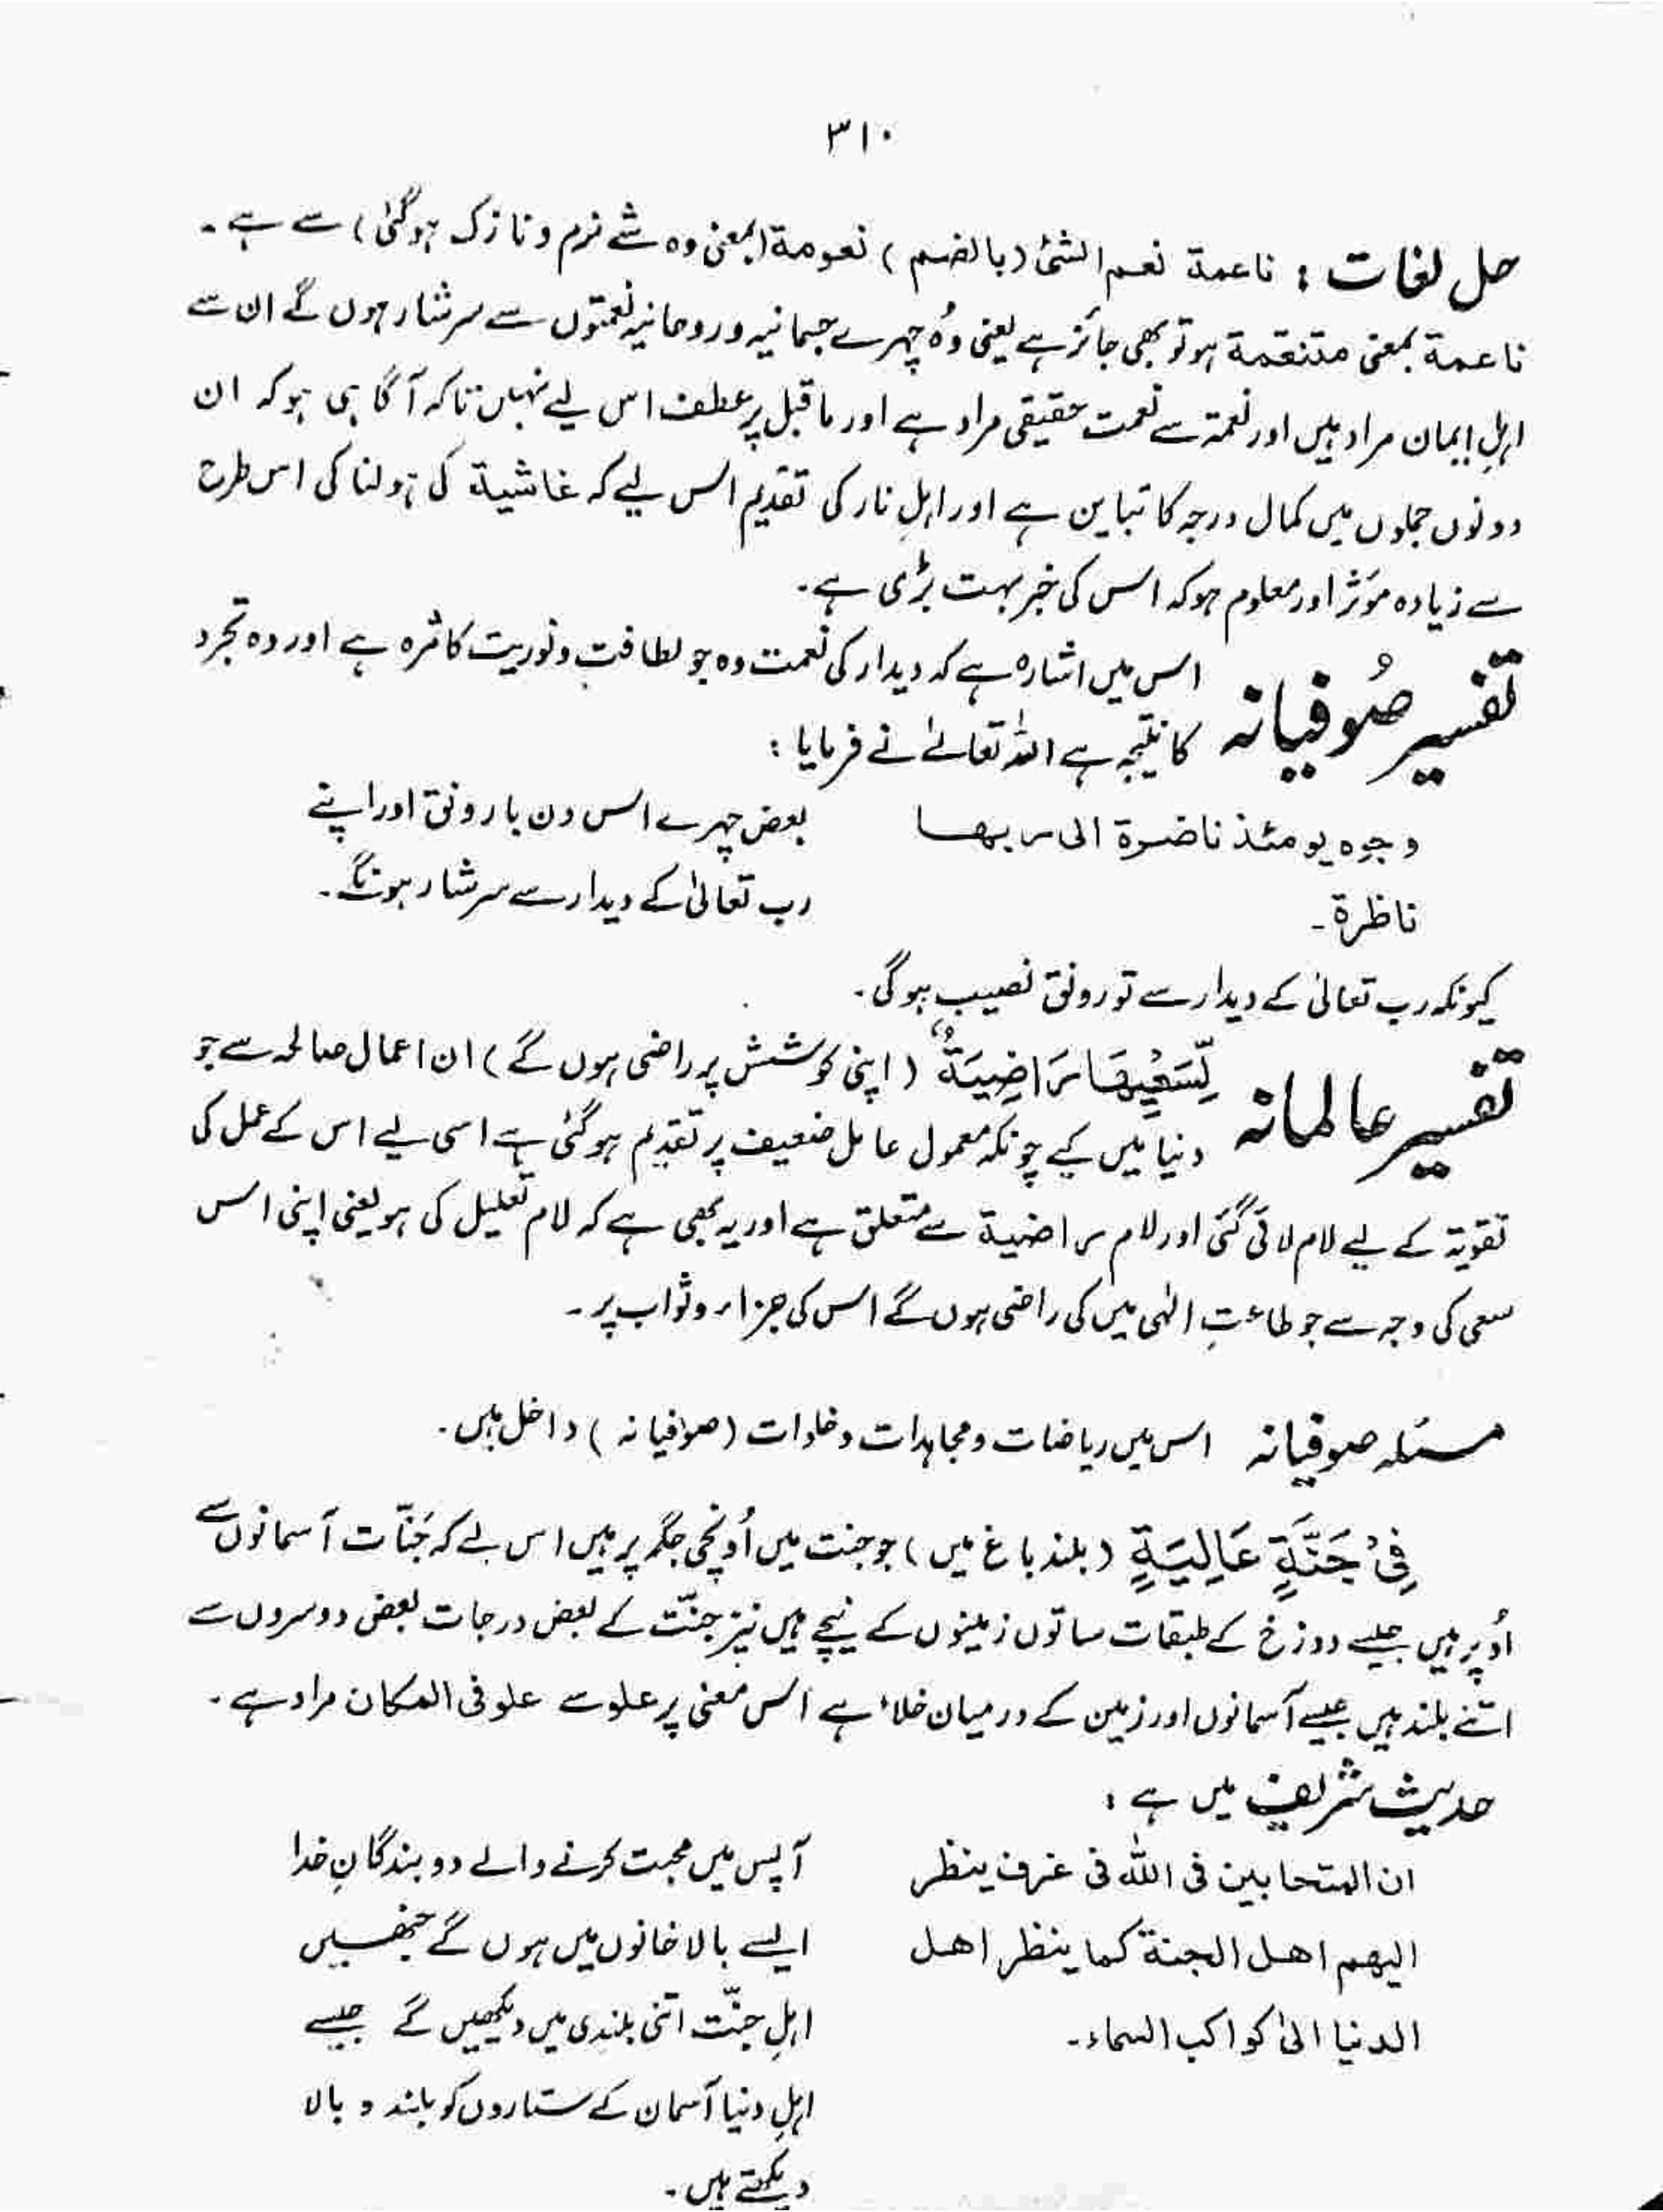 ۳۱۰
حل لغات : ناعمة نعم الشئ (بالضم) نعومة (بمعنی وہ شے نرم و نازک ہوگئی) سے ہے۔
ناعمة بمعنی متنعمة ہو تو بھی جائز ہے یعنی وُہ چہرے جسمانیہ و روحانیہ نعمتوں سے سرشار ہوں گے ان سے
اہلِ ایمان مراد ہیں اور نعمۃ سے نعمت حقیقی مراد ہے اور ماقبل پر عطف اس لیے نہیں تاکہ آگاہی ہو کہ ان
دونوں جملوں میں کمال درجہ کا تباین ہے اور اہلِ نار کی تقدیم اس لیے کہ غاشیة کی ہولناکی اس طرح
سے زیادہ مؤثر اور معلوم ہو کہ اس کی خبر بہت بڑی ہے۔
تفسیر صُوفیانہ اس میں اشارہ ہے کہ دیدار کی نعمت وہ جو لطافت و نوریت کا ثمرہ ہے اور وہ تجرد
کا نتیجہ ہے اللہ تعالےٰ نے فرمایا :
وجوه يومئذ ناضرة الى ربها بعض چہرے اس دن بارونق اور اپنے
ناظرة۔ رب تعالیٰ کے دیدار سے سرشار ہونگے۔
کیونکہ رب تعالیٰ کے دیدار سے تو رونق نصیب ہوگی۔
تفسیر عالمانہ لِّسَعْيِهَا رَاضِيَةٌ (اپنی کوشش پر راضی ہوں گے) ان اعمال صالحہ سے جو
دنیا میں کیے چونکہ معمول عامل ضعیف پر تقدیم ہوگئی ہے اسی لیے اس کے عمل کی
تقویۃ کے لیے لام لائی گئی اور لام راضية سے متعلق ہے اور یہ بھی ہے کہ لام تعلیل کی ہو یعنی اپنی اس
سعی کی وجہ سے جو طاعتِ الٰہی میں کی راضی ہوں گے اس کی جزاء و ثواب پر۔
مسئلہ صوفیانہ اس میں ریاضات و مجاہدات و خلوات (صوفیانہ) داخل ہیں۔
فِىْ جَنَّةٍ عَالِيَةٍ (بلند باغ میں) جو جنت میں اُونچی جگہ پر ہیں اس لیے کہ جَنّات آسمانوں سے
اُوپر ہیں جیسے دوزخ کے طبقات ساتوں زمینوں کے نیچے ہیں نیز جنّت کے بعض درجات بعض دوسروں سے
اتنے بلند ہیں جیسے آسمانوں اور زمین کے درمیان خلاء ہے اس معنی پر علو سے علو فی المکان مراد ہے۔
حدیث شریف میں ہے :
ان المتحابين فى الله فى غرف ينظر آپس میں محبت کرنے والے دو بندگانِ خدا
اليهم اهل الجنة كما ينظر اهل ایسے بالا خانوں میں ہوں گے جنھیں
الدنيا الىٰ كواكب السماء۔ اہلِ جنّت اتنی بلندی میں دیکھیں گے جیسے
اہلِ دنیا آسمان کے ستاروں کو بلند و بالا
دیکھتے ہیں۔